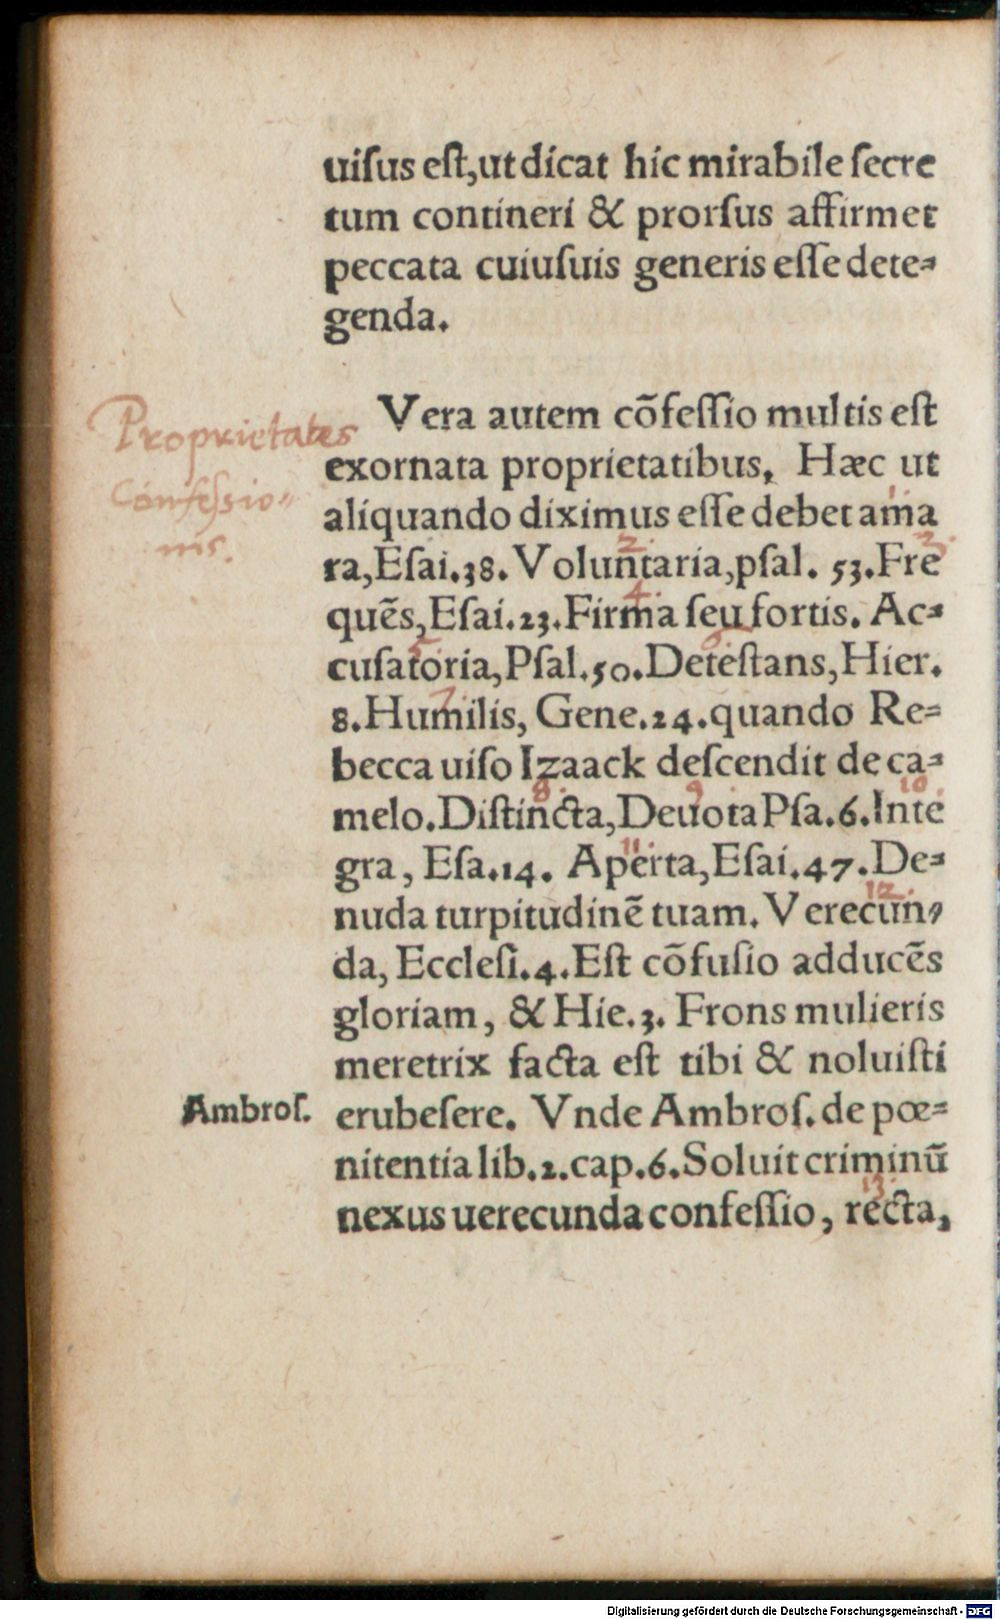 uiſus eſt,ut dicat hic mirabile ſecre
tum contineri & prorſus affirmet
peccata cuiuſuis generis eſſe dete-
genda.
Proprietates
Confeſsio-
nis.
Vera autem cõfeſſio multis eſt
exornata proprietatibus, Hæc ut
1.
aliquando diximus eſſe debet ama
2. 3.
ra,Eſai.38. Voluntaria,pſal. 53.Fre
4.
quẽs,Eſai.23.Firma ſeu fortis. Ac-
5. 6.
cuſatoria,Pſal.50.Deteſtans,Hier.
7.
8.Humilis, Gene.24.quando Re-
becca uiſo Izaack deſcendit de ca-
8. 9. 10.
melo.Diſtincta,Deuota Pſa.6.Inte
11.
gra, Eſa.14. Aperta,Eſai.47.De-
12.
nuda turpitudinẽ tuam. Verecun-
da, Eccleſi.4.Eſt cõfuſio adducẽs
gloriam, & Hie.3. Frons mulieris
meretrix facta eſt tibi & noluiſti
Ambroſ.
erubeſere. Vnde Ambroſ. de pœ-
nitentia lib.2.cap.6.Soluit criminũ
13.
nexus uerecunda confeſſio, recta,
Digitalisierung gefördert durch die Deutsche Forschungsgemeinschaft - DFG